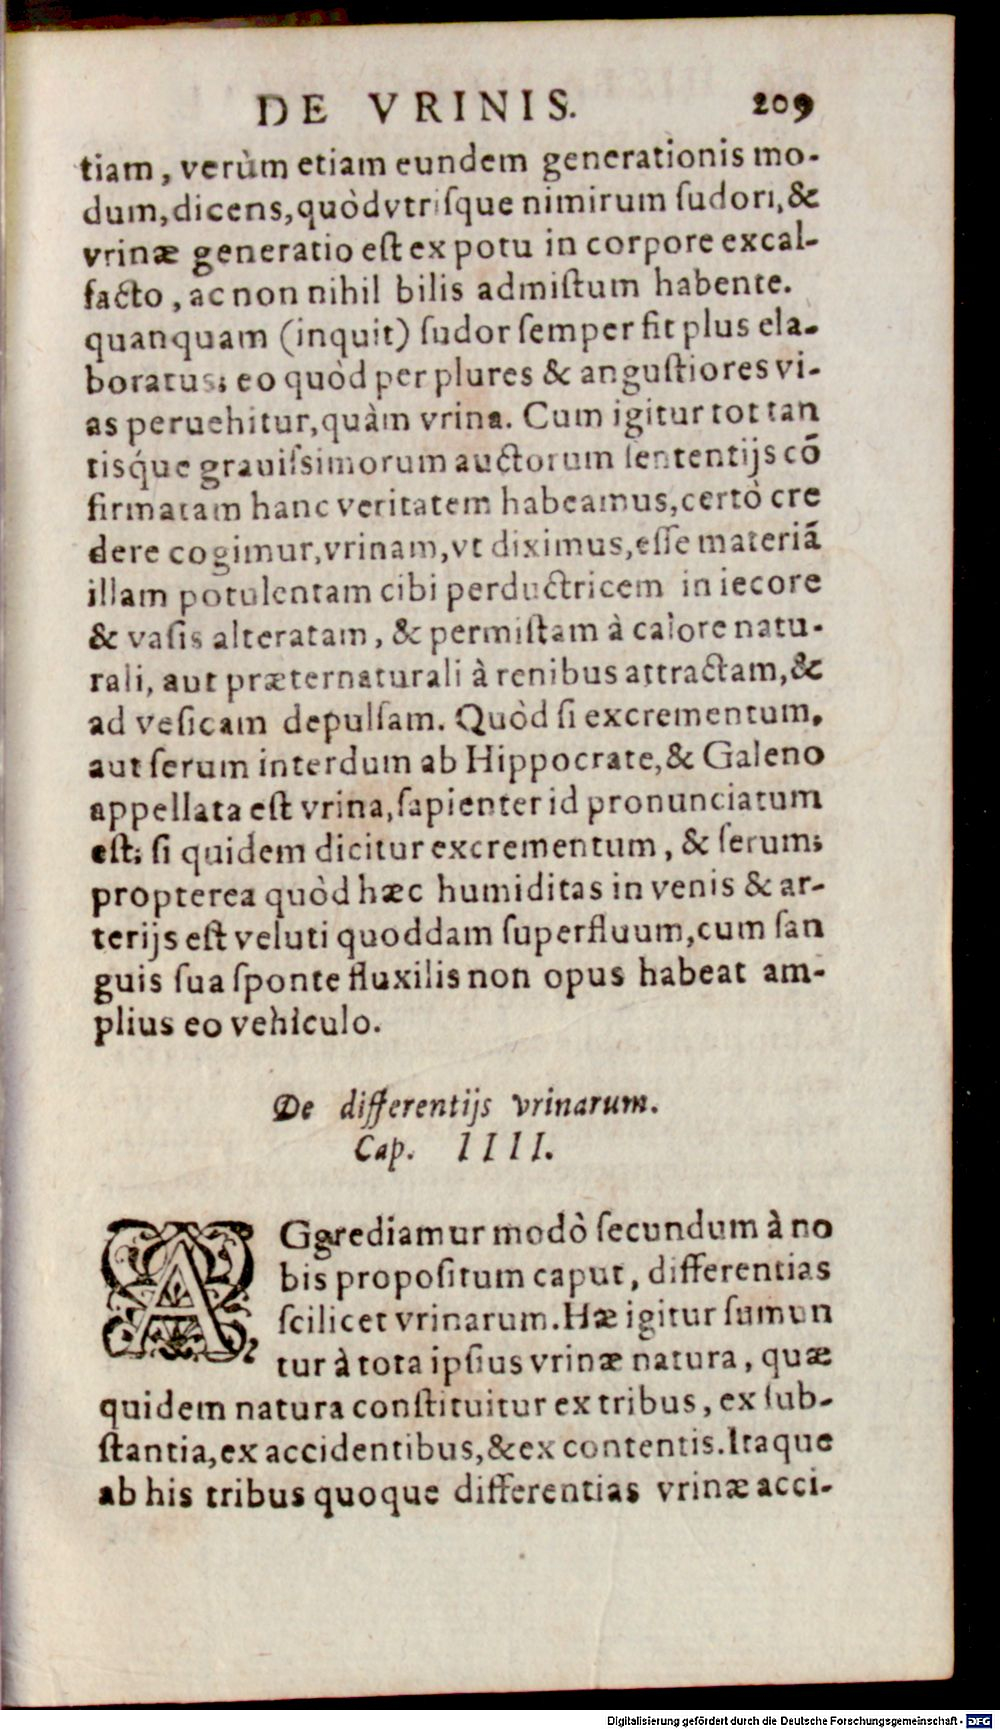 DE VRINIS. 209
tiam, verùm etiam eundem generationis mo-
dum, dicens, quòd vtrisque nimirum sudori, &
vrinæ generatio est ex potu in corpore excal-
facto, ac non nihil bilis admistum habente.
quanquam (inquit) sudor semper fit plus ela-
boratus; eo quòd per plures & angustiores vi-
as peruehitur, quàm vrina. Cum igitur tot tan
tisq́ue grauissimorum auctorum sententijs cō
firmatam hanc veritatem habeamus, certò cre
dere cogimur, vrinam, vt diximus, esse materiā
illam potulentam cibi perductricem in iecore
& vasis alteratam, & permistam à calore natu-
rali, aut præternaturali à renibus attractam, &
ad vesicam depulsam. Quòd si excrementum,
aut serum interdum ab Hippocrate, & Galeno
appellata est vrina, sapienter id pronunciatum
est; si quidem dicitur excrementum, & serum;
propterea quòd hæc humiditas in venis & ar-
terijs est veluti quoddam superfluum, cum san
guis sua sponte fluxilis non opus habeat am-
plius eo vehiculo.
De differentijs vrinarum.
Cap. IIII.
AGgrediamur modò secundum à no
bis propositum caput, differentias
scilicet vrinarum. Hæ igitur sumun
tur à tota ipsius vrinæ natura, quæ
quidem natura constituitur ex tribus, ex sub-
stantia, ex accidentibus, & ex contentis. Itaque
ab his tribus quoque differentias vrinæ acci-
Digitalisierung gefördert durch die Deutsche Forschungsgemeinschaft - DFG